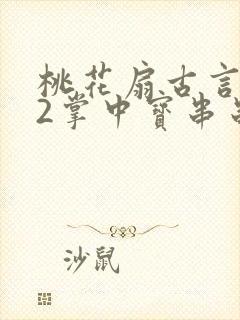 桃花扇古言
2掌中寳串
沙鼠